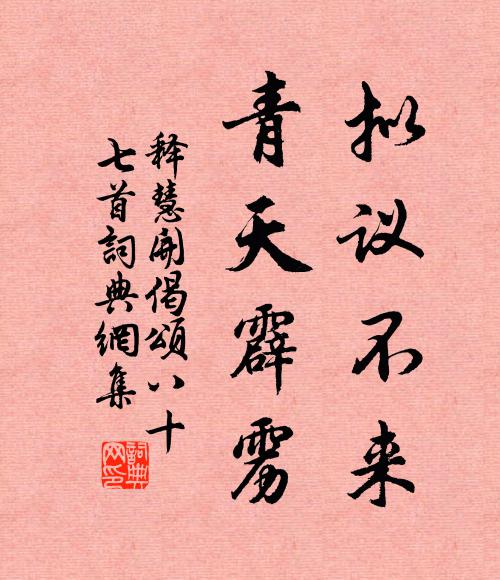 拟议不来
青天霹雳
释慧开偈頌八十
七首詞典網集
詞典网印